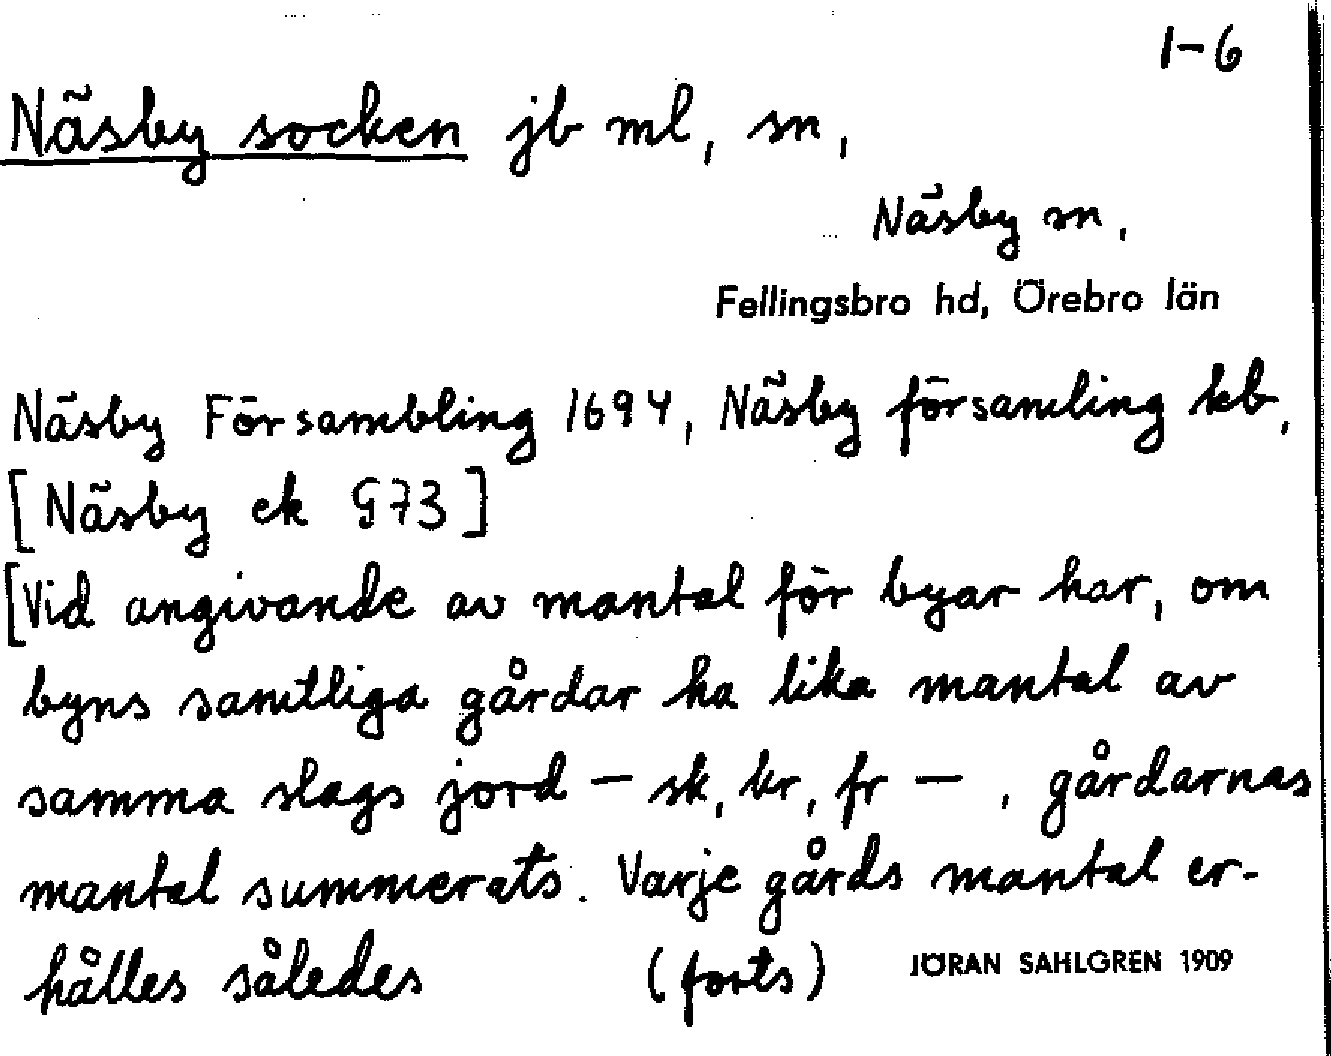 1-6
Näsby socken jb ml, sn,
Näsby sn,
Fellingsbro hd, Örebro län
Näsby Försambling 1694, Näsby församling kb,
[Näsby ek G73]
[Vid angivande av mantal för byar har, om
byns samtliga gårdar ha lika mantal av
samma slags jord – sk, kr, fr – , gårdarnas
mantal summerats. Varje gårds mantal er-
hålles således (forts)
JÖRAN SAHLGREN 1909